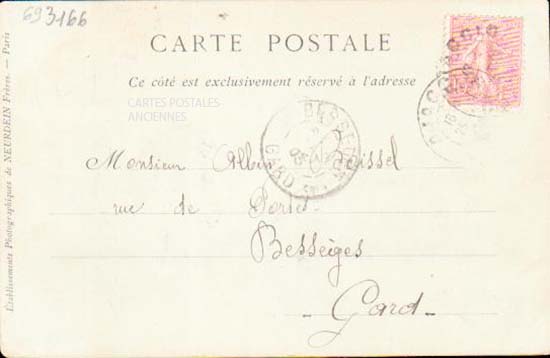 693166
CARTE POSTALE
Ce côté est exclusivement réservé à l'adresse
CARTES POSTALES
ANCIENNES
Monsieur Albin
rue de
Bessèges
Gard
GARD
05
Etablissements Photographiques de NEURDEIN Frères. — Paris